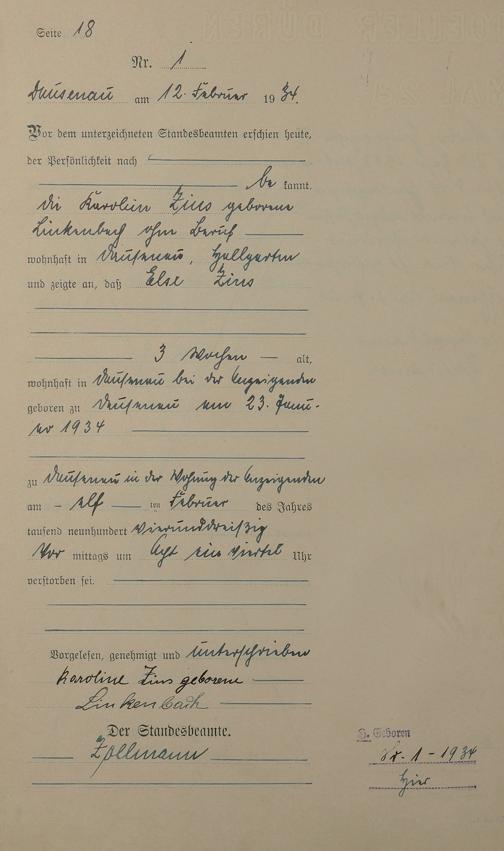 Seite 18
Nr. 1
Dausenau am 12. Februar 1934.
Vor dem unterzeichneten Standesbeamten erschien heute,
der Persönlichkeit nach
be kannt,
die Karolin Zins geborene
Linkenbach ohne Beruf
wohnhaft in Dausenau, Hallgarten
und zeigte an, daß Else Zins
3 Wochen alt,
wohnhaft in Dausenau bei der Anzeigenden
geboren zu Dausenau am 23. Janu-
ar 1934
zu Dausenau in der Wohnung der Anzeigenden
am - elf - ten Februar des Jahres
tausend neunhundert vierunddreißig
Vor mittags um acht ein viertel Uhr
verstorben sei.
Vorgelesen, genehmigt und unterschrieben
Karoline Zins geborene
Linkenbach
Der Standesbeamte.
Zollmann
Geboren
Nr. 1 - 1934
hier